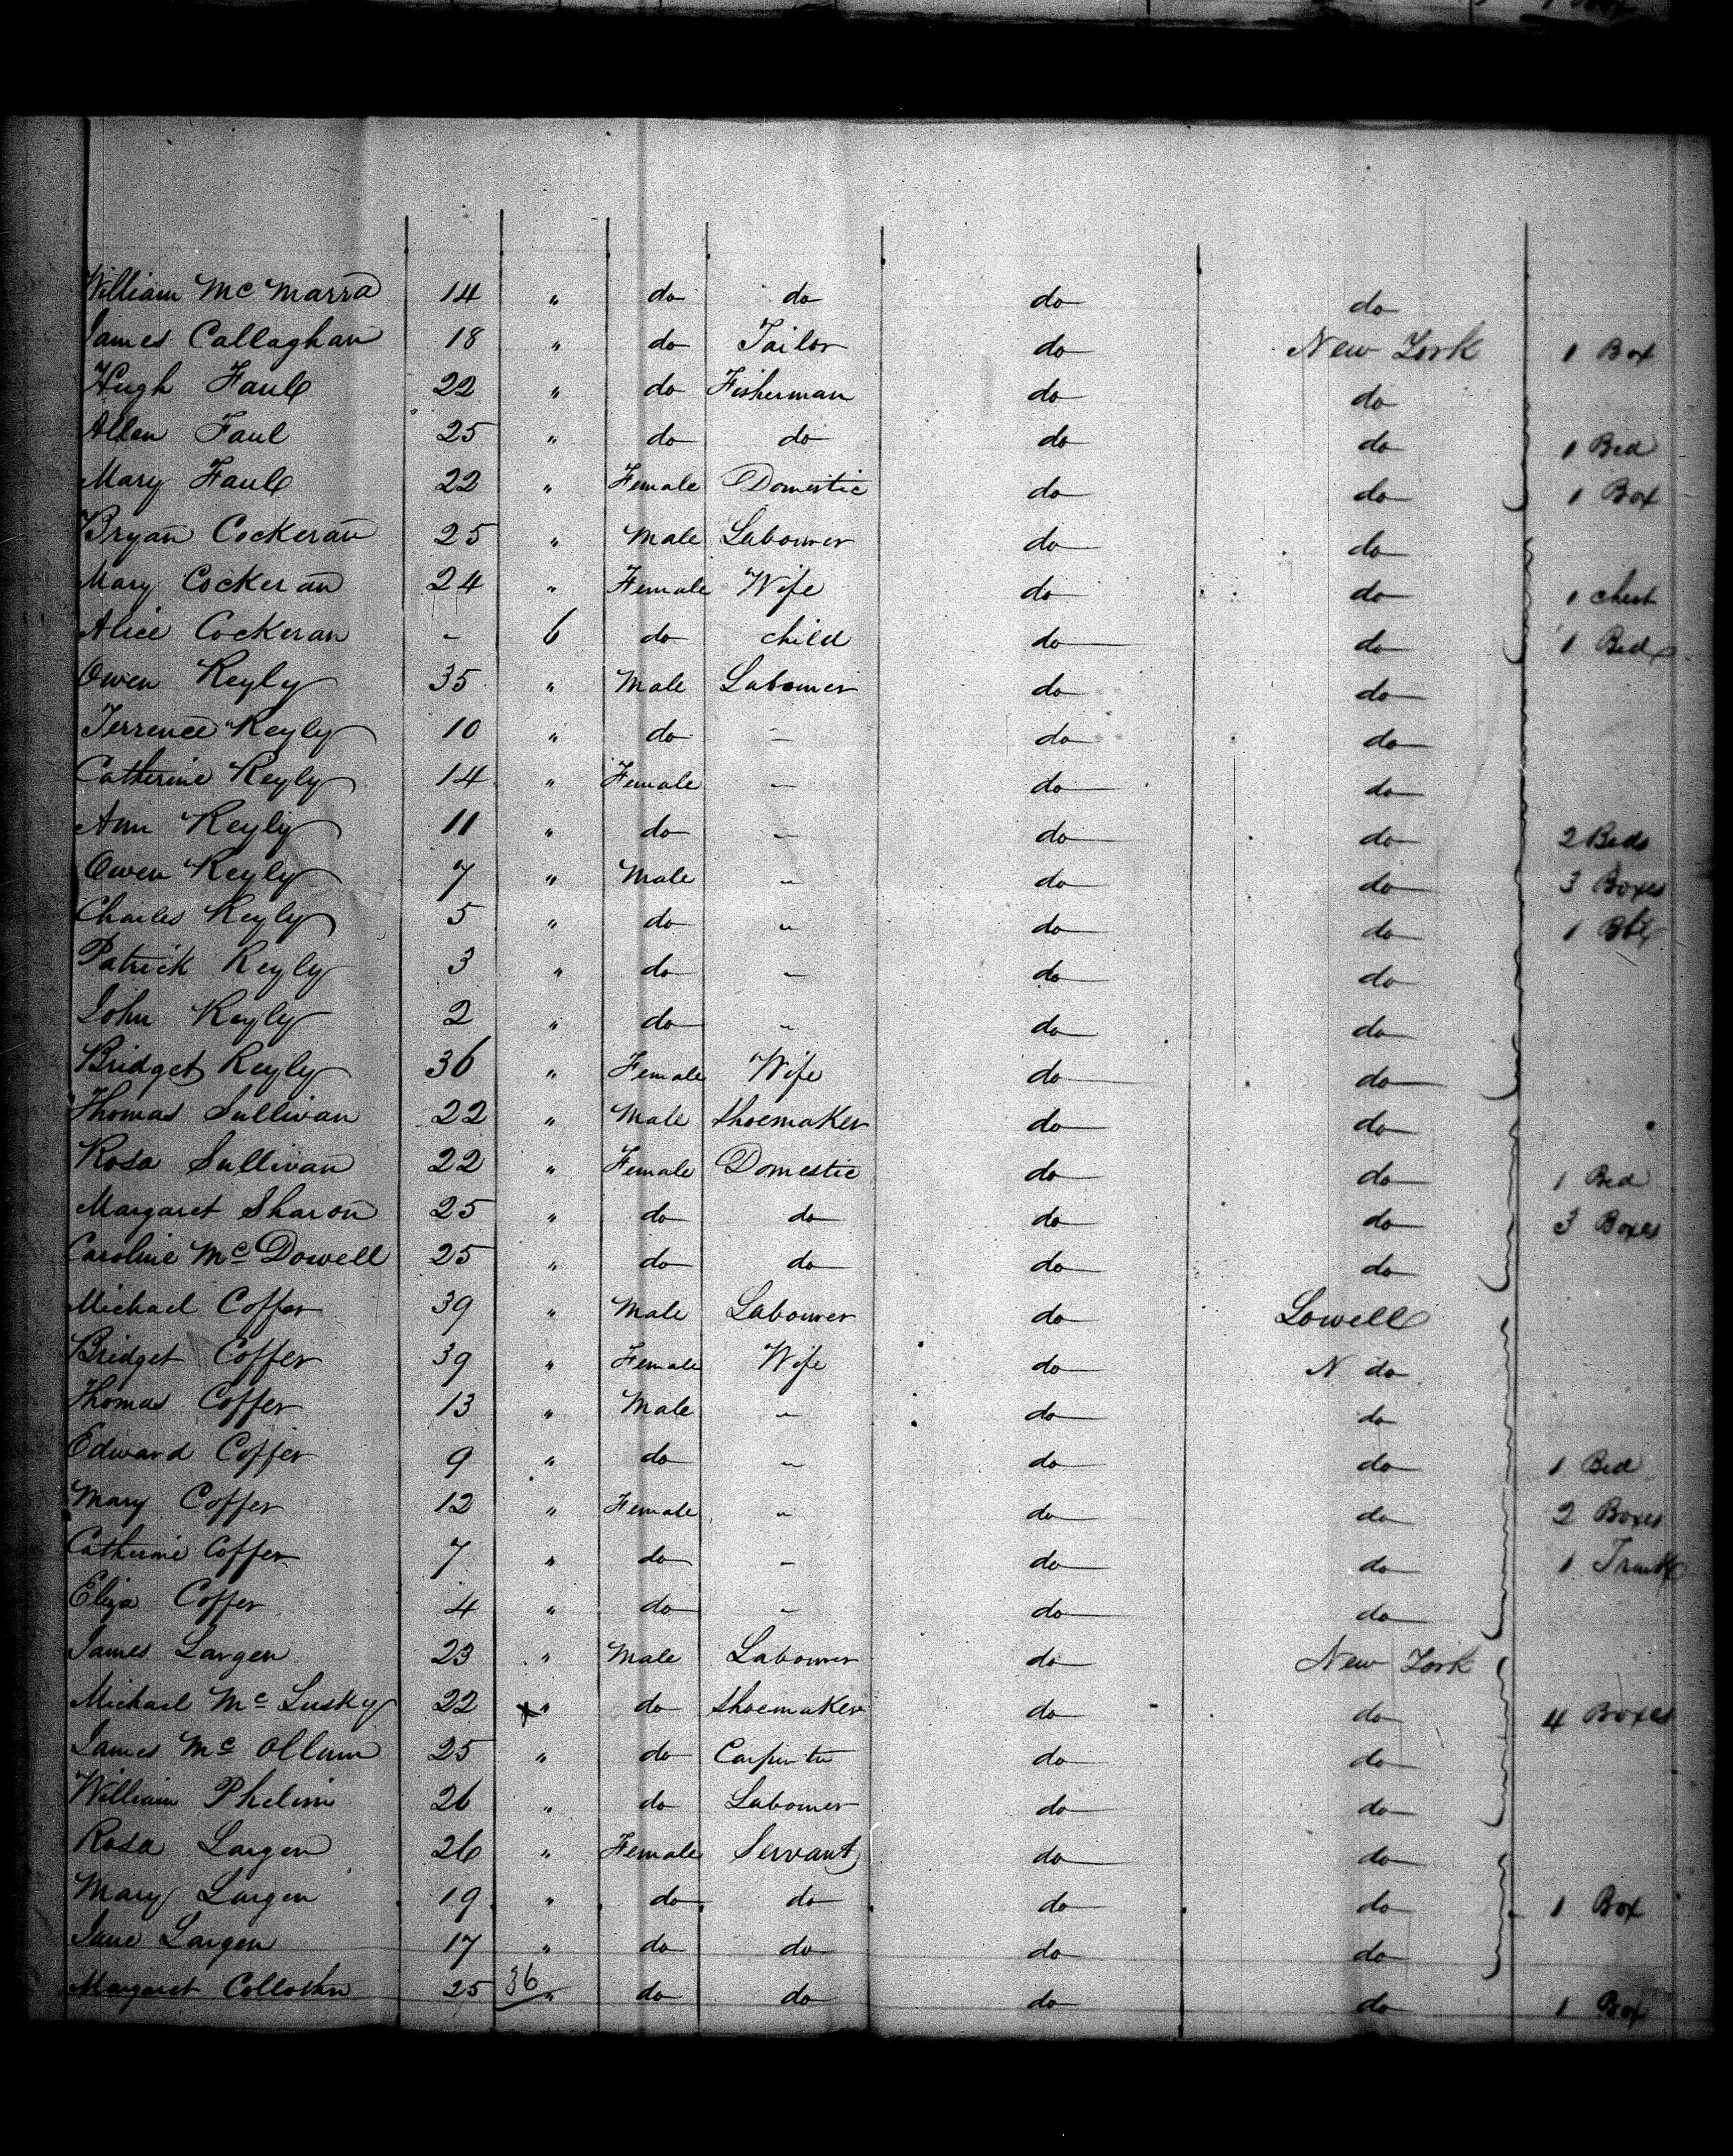 William Mc Marra 14 " do do do do
James Callaghan 18 " do Tailor do New York 1 Box
Hugh Faull 22 " do Fisherman do do
Allen Faul 25 " do do do do 1 Bed
Mary Faull 22 " Female Domestic do do 1 Box
Bryan Cockeran 25 " Male Labourer do do
Mary Cockeran 24 " Female Wife do do 1 chest
Alice Cockeran - 6 do child do do 1 Bed
Owen Reyly 35 " Male Labourer do do
Terrence Reyly 10 " do - do do
Catherine Reyly 14 " Female - do do
Ann Reyly 11 " do - do do 2 Beds
Owen Reyly 7 " Male - do do 3 Boxes
Charles Reyly 5 " do " do do 1
Patrick Reyly 3 " do - do do
John Reyly 2 " do " do do
Bridget Reyly 36 " Female Wife do do
Thomas Sullivan 22 " Male Shoemaker do do
Rosa Sullivan 22 " Female Domestic do do 1 Bed
Margaret Sharon 25 " do do do do 3 Boxes
Caroline Mc Dowell 25 " do do do do
Michael Coffer 39 " Male Labourer do Lowell
Bridget Coffer 39 " Female Wife do N do
Thomas Coffer 13 " Male - do do
Edward Coffer 9 " do - do do 1 Bed
Mary Coffer 12 " Female " do do 2 Boxes
Catherine Coffer 7 " do - do do 1 Trunk
Eliza Coffer 4 " do - do do
James Largen 23 " Male Labourer do New York
Michael Mc Lusky 22 x " do Shoemaker do do 4 Boxes
James Mc Ollum 25 " do Carpenter do do
William Phelim 26 " do Labourer do do
Rosa Largen 26 " Female Servant do do
Mary Largen 19 " do do do do 1 Box
Jane Largen 17 " do do do do
Margaret 25 36 " do do do do 1 Box